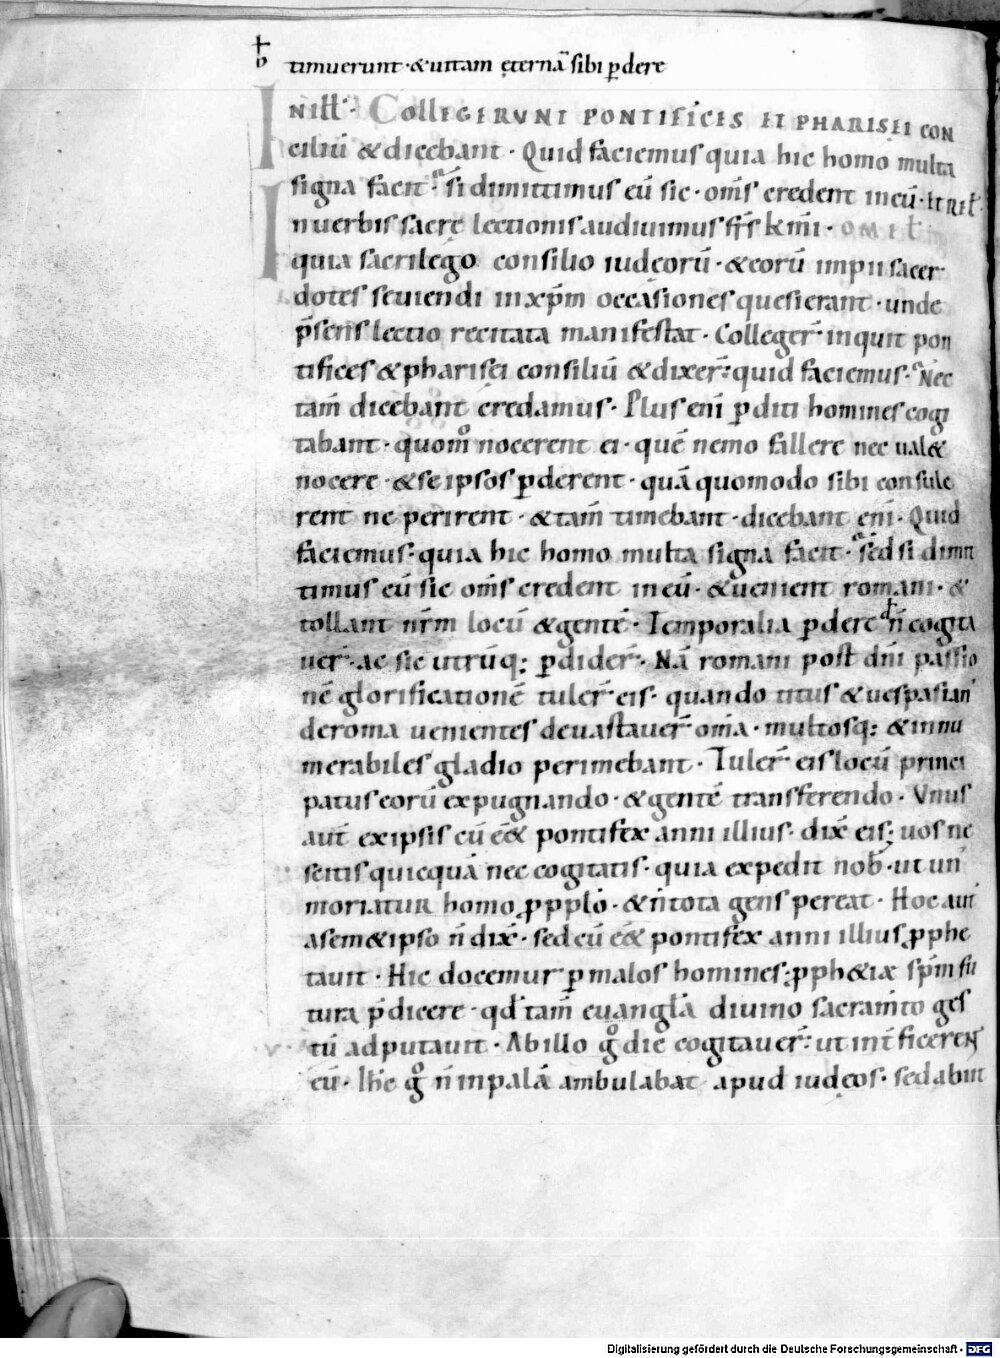 timuerunt · & uitam ęternā sibi ꝑdere
IN ill̄ · COLLEGERVNT PONTIFICES ET PHARISEI CON
ciliū & dicebant · Quid faciemus quia hic homo multa
signa facit · si dimittimus eū sic · om̄s credent in eū · ET REL̄
In uerbis sacrę lectionis audiuimus fr̄s km̄i · OMEL̄
quia sacrilego consilio iudęorū · & eorū impii sacer
dotes seuiendi in xp̄m occasiones quesierant · unde
p̄sens lectio recitata manifestat · Colleger̄ inquit pon
tifices & pharisęi consiliū & dixer̄: quid faciemus · Nec
tam̄ dicebant credamus · Plus eni ꝑditi homines cogi
tabant · quom̊ nocerent ei · quē nemo fallere nec ual&
nocere · & se ipsos ꝑderent · quā quomodo sibi consule
rent ne perirent · & tam̄ timebant · dicebant eni · Quid
faciemus · quia hic homo multa signa facit · sed si dimit
timus eū sic om̄s credent in eū · & uenient romani · &
tollant nr̄m locū & gentē · Temporalia ꝑdere n̄ cogita
uer̄ · ac sic utrūq; ꝑdider̄ · Nā romani post dn̄i passio
nē glorificationē tuler̄ eis · quando titus & uespasian'
de roma uenientes deuastauer̄ om̄a · multosq; & innu
merabiles gladio perimebant · Tuler̄ eis locū princi
patus eorū expugnando · & gentē transferendo · Vnus
aut̄ ex ipsis cū ēē& pontifex anni illius · dix̄ eis; uos ne
scitis quicquā nec cogitatis · quia expedit nob̄ · ut un'
moriatur homo ꝓ pplo · & n̄ tota gens pereat · Hoc aut̄
a sem&ipso n̄ dix̄ · sed cū ēē& pontifex anni illius ꝓphe
tauit · Hic docemur ꝑ malos homines ꝓph&iæ sp̄m fu
tura p̄dicere · qd̄ tam̄ euangl̄a diuino sacram̄to ges
tū adputauit · Ab illo g̊ die cogitauer̄: ut int̄ficerent
eū · Ih̄c g̊ n̄ in palā ambulabat apud iudęos · sed abiit
Digitalisierung gefördert durch die Deutsche Forschungsgemeinschaft - DFG